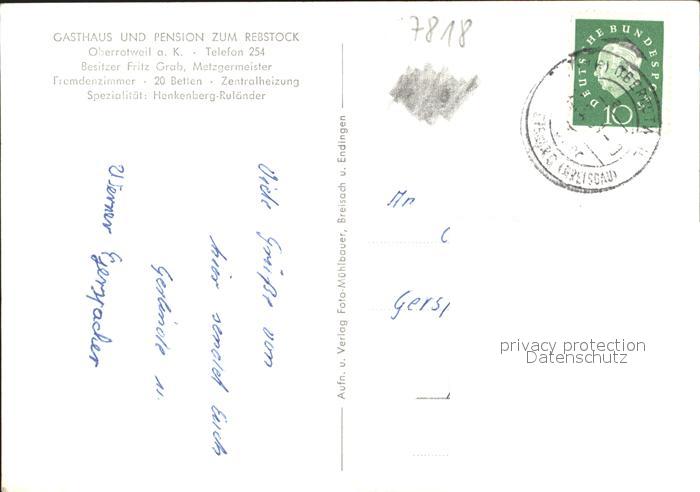 GASTHAUS UND PENSION ZUM REBSTOCK
Oberrotweil a. K. - Telefon 254
Besitzer Fritz Grab, Metzgermeister
Fremdenzimmer - 20 Betten - Zentralheizung
Spezialität: Henkenberg-Ruländer
7818
DEUTSCHE BUNDESPOST
10
(BREISGAU)
Viele Grüße von
hier sendet Euch
Gerlinde u.
Werner
Aufn. u. Verlag Foto-Mühlbauer, Breisach u. Endingen
An
Gersp
privacy protection
Datenschutz